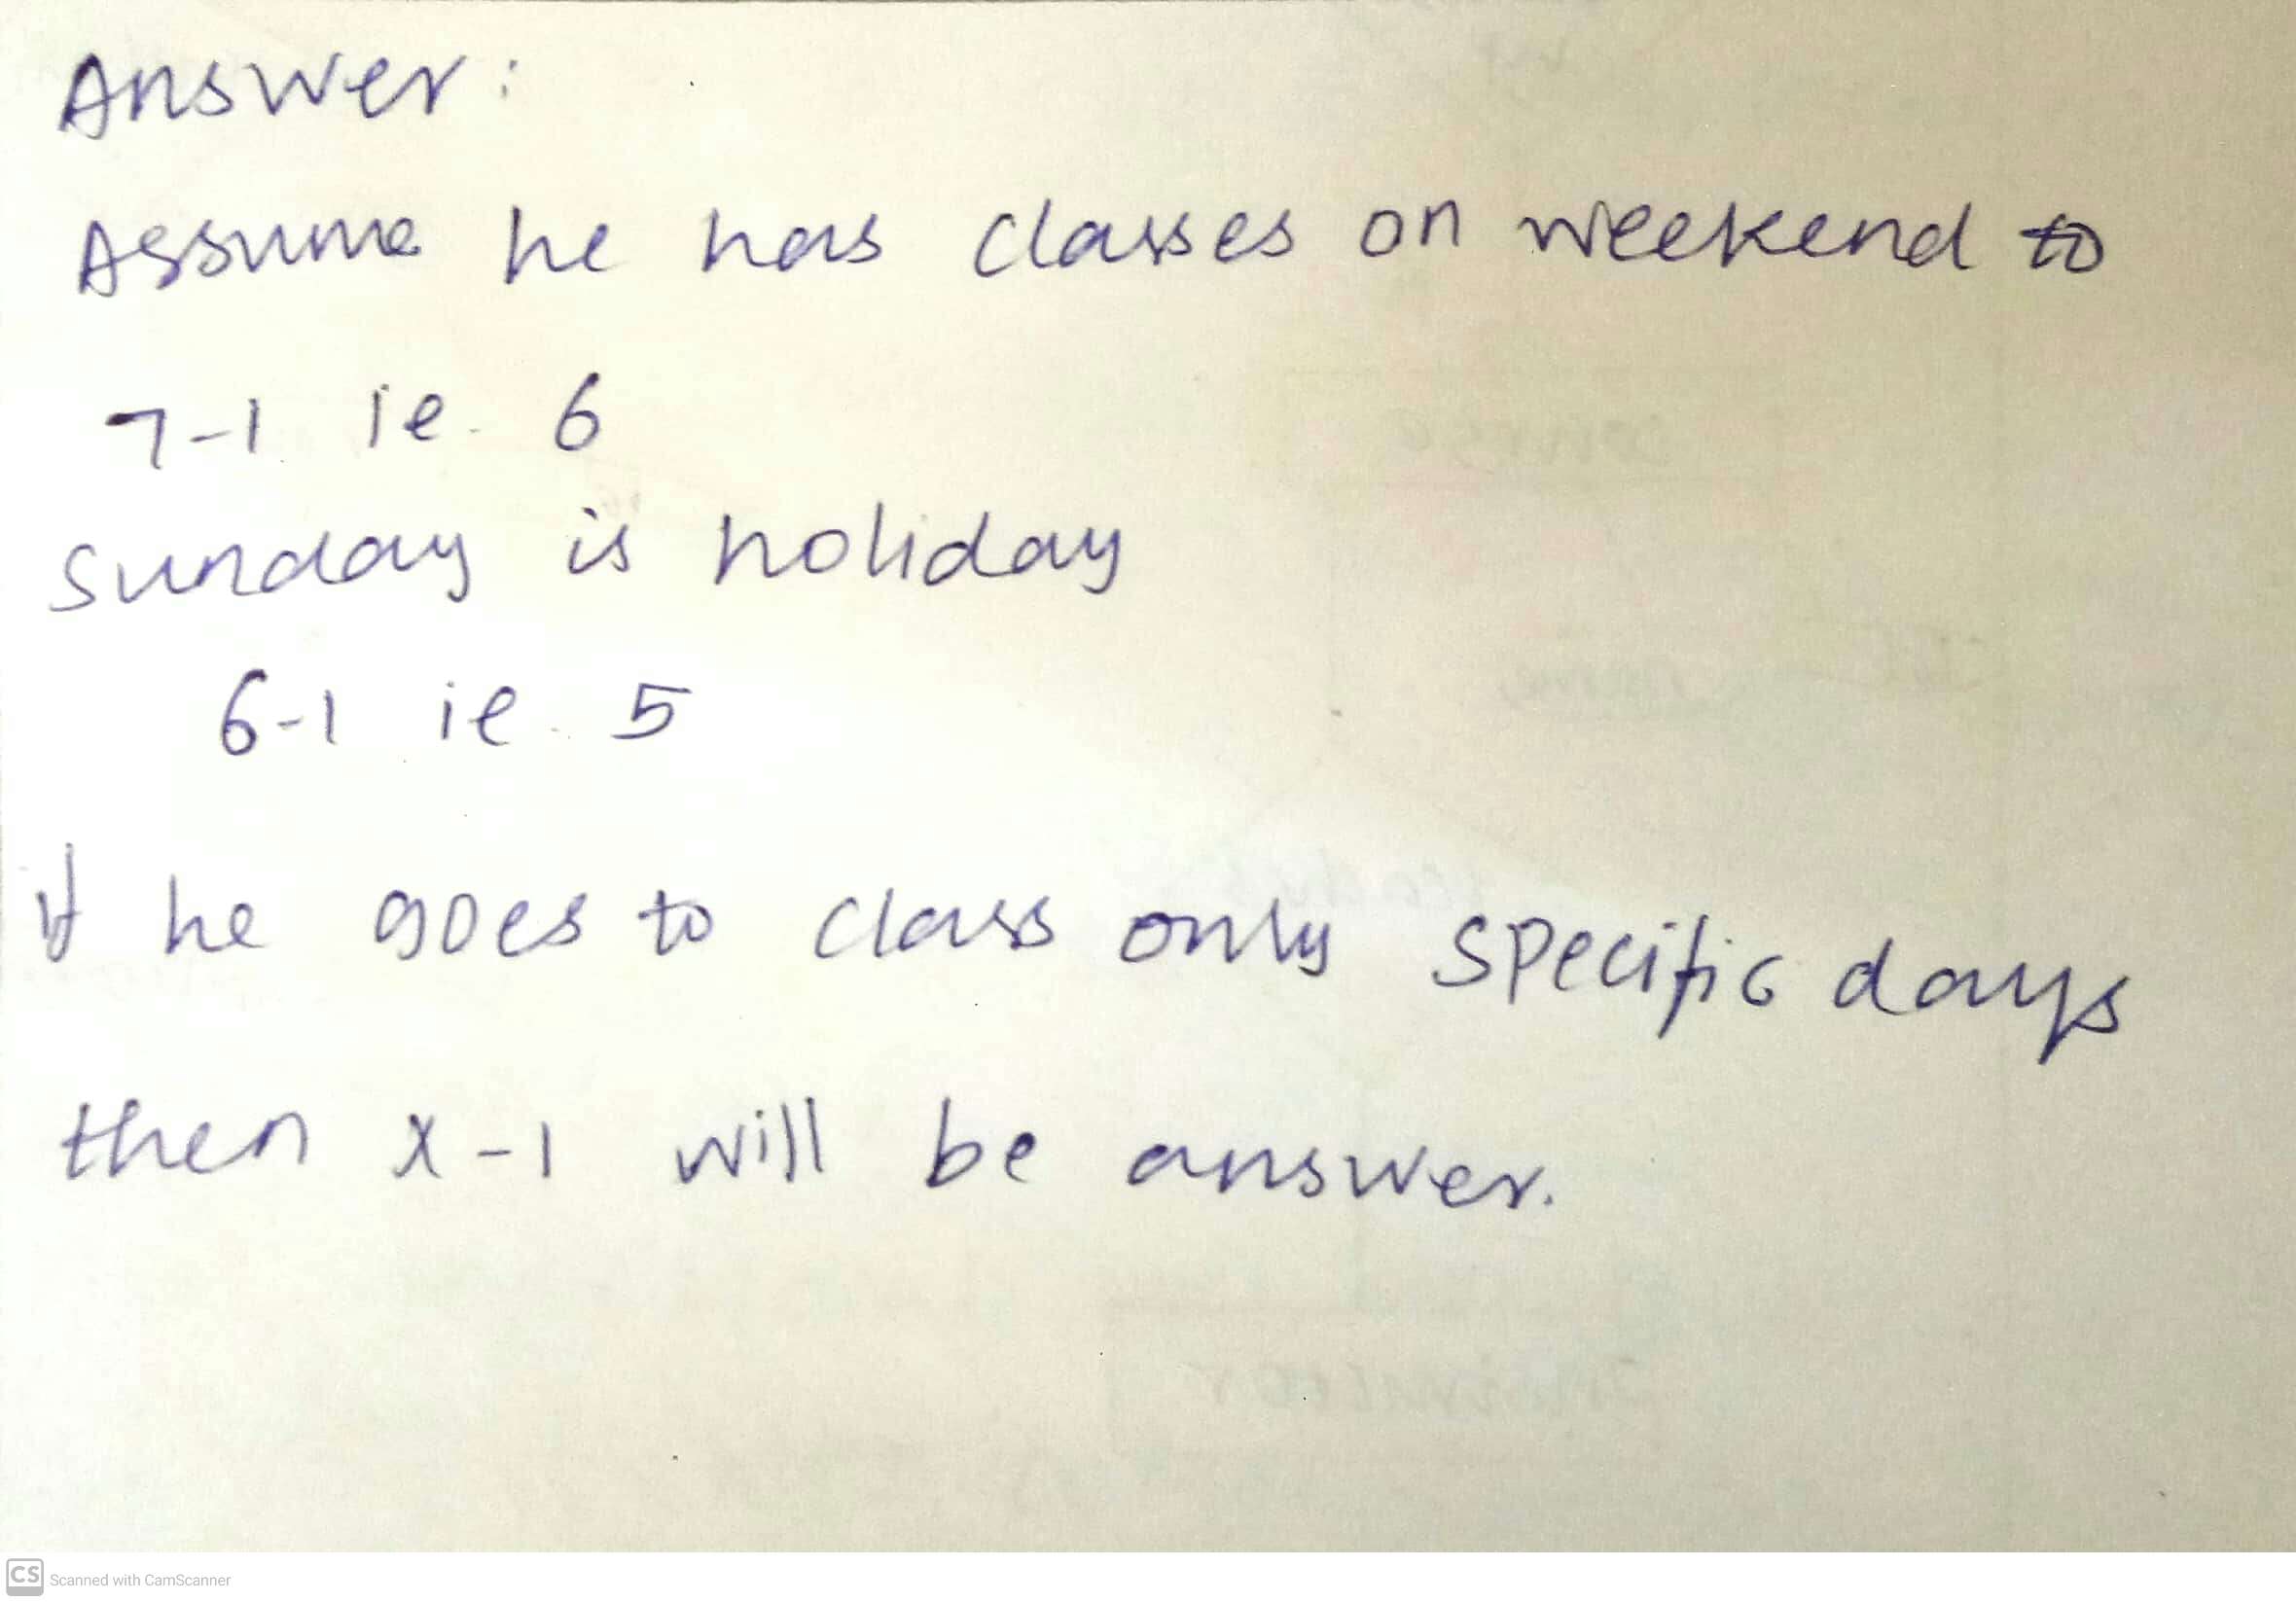 Answer:
Assume he has classes on weekend to
7-1 ie. 6
Sunday is holiday
6-1 ie. 5
if he goes to class only specific days
then x-1 will be answer.
CS Scanned with CamScanner